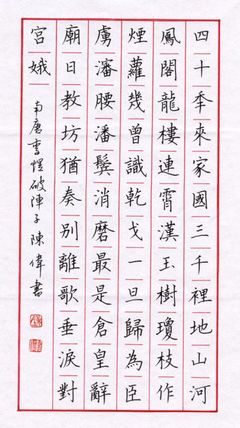 四十秊來家國三千裡地山河
鳳閣龍樓連霄漢玉樹瓊枝作
煙蘿幾曾識乾戈一旦歸為臣
虜瀋腰潘鬢消磨最是倉皇辭
廟日教坊猶奏別離歌垂淚對
宮娥
南唐李煜破陣子陳偉書